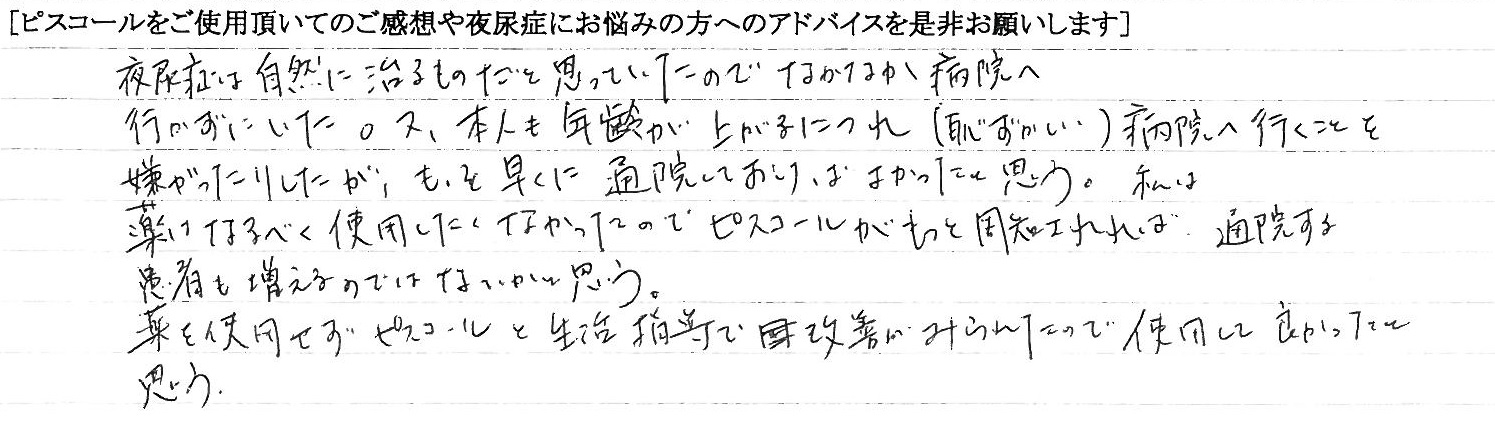 [ピスコールをご使用頂いてのご感想や夜尿症にお悩みの方へのアドバイスを是非お願いします]
夜尿症は自然に治るものだと思っていたのでなかなか病院へ
行かずにいた。又、本人も年齢が上がるにつれ(恥ずかしい)病院へ行くことを
嫌がったりしたが、もっと早くに通院しておけばよかったと思う。私は
薬はなるべく使用したくなかったのでピスコールがもっと周知されれば、通院する
患者も増えるのではないかと思う。
薬を使用せずピスコールと生活指導で改善がみられたので使用して良かったと
思う。